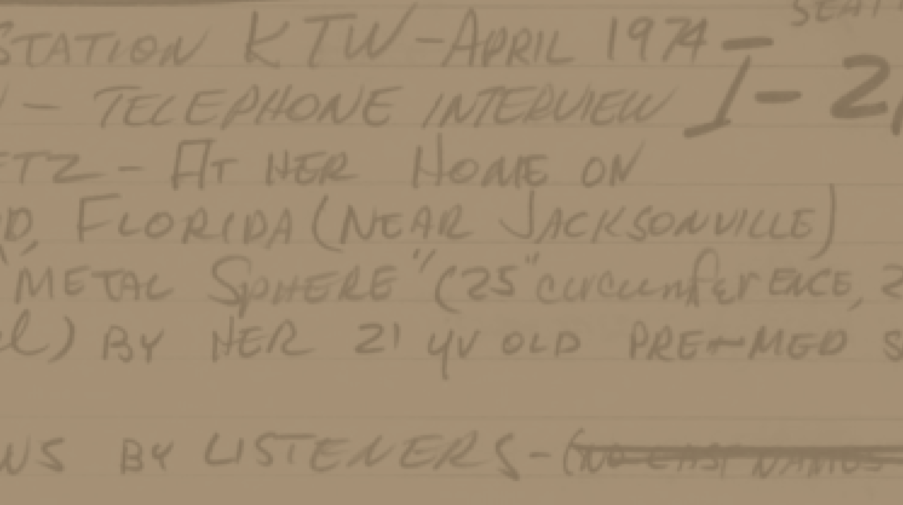 SEAT
STATION KTW - APRIL 1974 -
- TELEPHONE INTERVIEW I-2
ETZ - AT HER HOME ON
D, FLORIDA (NEAR JACKSONVILLE)
"METAL SPHERE" (25" circumference, 2
el) BY HER 21 yr OLD PRE-MED S
WS BY LISTENERS - (NO LAST NAMES